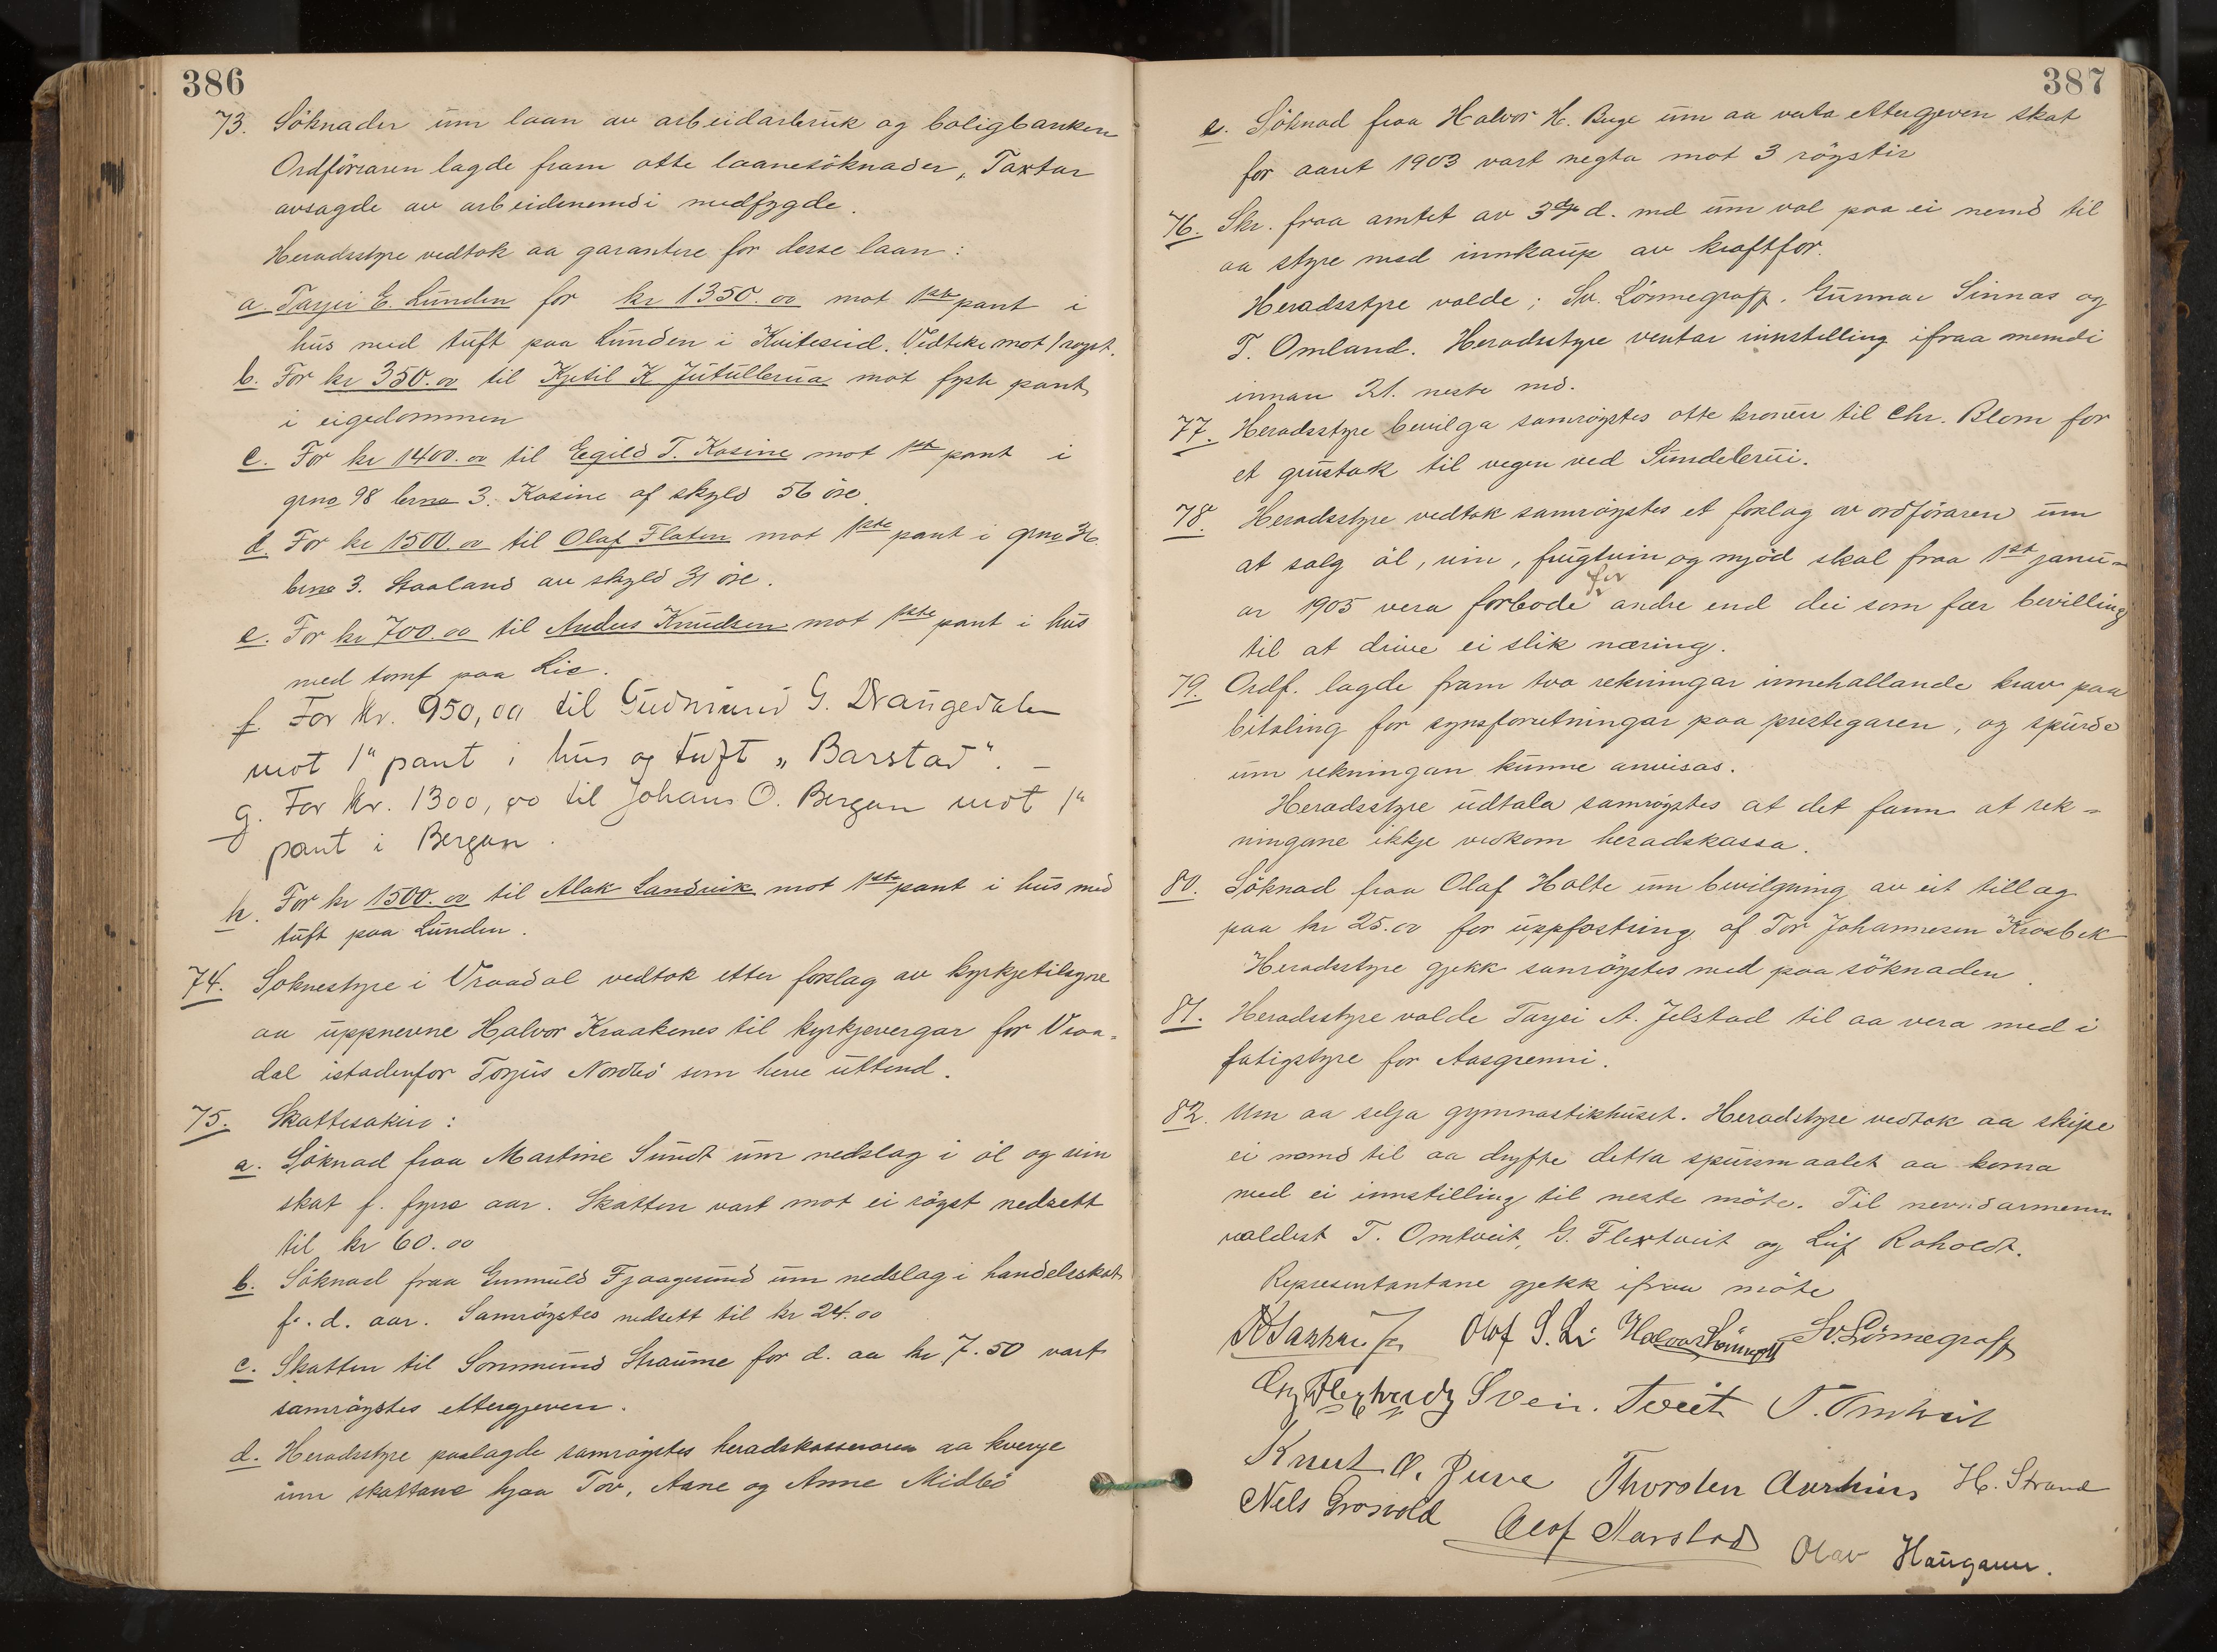 386
73. Söknader um laan av arbeidarbruk og boligbanken
Ordföraren lagde fram otte laanesöknader, Taxtar
avsagde av arbeidenemdi medfygde.
Heradsstyre vedtok aa garantere for desse laan:
a. Tarjei E. Lunden for kr 1350.00 mot 1ste pant i
hus med tuft paa Lunden i Kviteseid. Vedteke mot 1 röyst.
b. For kr 350.00 til Kjetil K Jutullbrua mot fyste pant
i eigedommen
c. For kr 1400.00 til Eegild T. Kosine mot 1ste pant i
grno 98 brno 3. Kosine af skyld 56 öre.
d. For kr 1500.00 til Olaf Flaten mot 1ste pant i grno 36
brno 3. Haaland av skyld 31 öre.
e. For kr 700.00 til Anders Knudsen mot 1ste pant i hus
med tomt paa Lie.
f. For kr. 950,00 til Gudmund G. Drangedalen
mot 1" pant i hus og tuft „Barstad". –
g. For kr. 1300,00 til Johans O. Bergan mot 1"
pant i Bergan.
h. For kr 1500.00 til Alak Landsvik mot 1ste pant i hus med
tuft paa Lunden.
74. Soknestyre i Vraadal vedtok etter forslag av kyrkjetilsyne
aa uppnevne Halvor Kraakenes til kyrkjevergar for Vraa-
dal istadenfor Torjus Nordbö som heve uttend.
75. Skattesakir:
a. Söknad fraa Martine Sundt um nedslag i öl og vin
skat f. fyrre aar. Skatten vart mot ei röyst nedsett
til kr 60.00
b. Söknad fraa Gunnuld Fjaagesund um nedslag i handelsskat
f. d. aar. Samröystes nedsett til kr 24.00
c. Skatten til Sommund Straume for d. aa kr 7.50 vart
samröystes ettergjeven.
d. Heradsstyre paalagde samröystes heradskasseraren aa kverje
inn skattane hjaa Tov, Aane og Anne Midbö
387
e. Söknad fraa Halvor H. Buge um aa verta ettergjeven skat
for aaret 1903 vart negta mot 3 röystir
76. Skr. fraa amtet av 3dje d. md um val paa ei nemd til
aa styre med innkaup av kraftfor.
Heradsstyre valde; Sv. Lönnegraff. Gunnar Sinnas og
T. Omland. Heradsstyre ventar innstelling ifraa nemndi
innan 21. neste md.
77. Heradsstyre bevilga samröystes otte kronur til Chr. Blom for
et grustak til vegen ved Sundebrui.
78. Heradsstyre vedtok samröystes et forslag av ordföraren um
at salg öl, vin, frugtvin og mjöd skal fraa 1ste janu-
ar 1905 vera forbode for andre end dei som fær bevilling
til at drive ei slik næring.
79. Ordf. lagde fram tvo rekningar innehallande krav paa
bitaling for synsforretningar paa prestegaren, og spurde
um rekningan kunne anvisas.
Heradsstyre udtala samröystes at det fann at rek-
ningane ikkje vedkom heradskassa.
80. Söknad fraa Olaf Holte um bevilgning av eit tillag
paa kr 25.00 for uppfostring af Tor Johannesen Krosbek
Heradsstyre gjekk samröystes med paa söknaden.
81. Heradsstyre valde Tarjei A. Jelstad til aa vera med i
fatigstyre for Aasgrenni.
82. Um aa selja gymnastikhuset. Heradstyre vedtok aa skipe
ei nemd til aa dryfte detta spursmaalet aa koma
med ei innstilling til neste möte. Til nevndarmenn
valdest T. Omtveit, G. Flextveit og Leif Roholdt.
Representantane gjekk ifraa möte
Olof S. Li Halvor Lönnegraff Sv. Lönnegraff
Svein. Tveit T. Omtveit
Knut O. Juve Thorsten Aarhus H. Strand
Nels Grosvold Olof Narstad Olav Haugann.